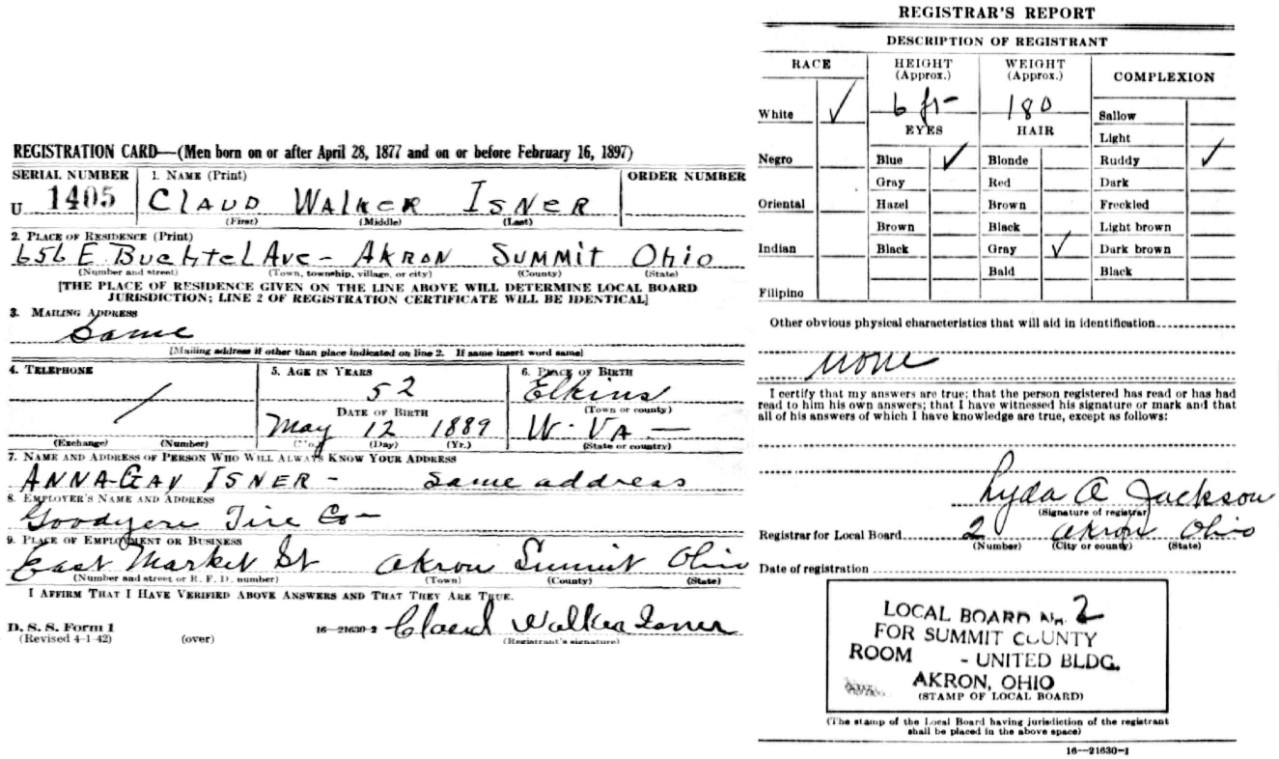 REGISTRATION CARD—(Men born on or after April 28, 1877 and on or before February 16, 1897)
SERIAL NUMBER 1. NAME (Print) ORDER NUMBER
U 1405 CLAUD WALKER ISNER
(First) (Middle) (Last)
2. PLACE OF RESIDENCE (Print)
656 E Buchtel Ave - AKRON SUMMIT OHIO
(Number and street) (Town, township, village, or city) (County) (State)
[THE PLACE OF RESIDENCE GIVEN ON THE LINE ABOVE WILL DETERMINE LOCAL BOARD
JURISDICTION; LINE 2 OF REGISTRATION CERTIFICATE WILL BE IDENTICAL]
3. MAILING ADDRESS
Same
[Mailing address if other than place indicated on line 2. If same insert word same]
4. TELEPHONE 5. AGE IN YEARS 6. PLACE OF BIRTH
52 Elkins
DATE OF BIRTH (Town or county)
May 12 1889 W. VA —
(Exchange) (Number) (Mo.) (Day) (Yr.) (State or country)
7. NAME AND ADDRESS OF PERSON WHO WILL ALWAYS KNOW YOUR ADDRESS
ANNA GAY ISNER - Same address
8. EMPLOYER'S NAME AND ADDRESS
Goodyear Tire Co —
9. PLACE OF EMPLOYMENT OR BUSINESS
East Market St Akron Summit Ohio
(Number and street or R. F. D. number) (Town) (County) (State)
I AFFIRM THAT I HAVE VERIFIED ABOVE ANSWERS AND THAT THEY ARE TRUE.
D. S. S. Form 1
(Revised 4-1-42) (over) 16—21630-2 Claud Walker Isner
(Registrant's signature)
REGISTRAR'S REPORT
DESCRIPTION OF REGISTRANT
RACE HEIGHT (Approx.) WEIGHT (Approx.) COMPLEXION
6 ft- 180
White ✓ Sallow
EYES HAIR
Light
Negro Blue ✓ Blonde Ruddy ✓
Gray Red Dark
Oriental Hazel Brown Freckled
Brown Black Light brown
Indian Black Gray ✓ Dark brown
Bald Black
Filipino
Other obvious physical characteristics that will aid in identification
none
I certify that my answers are true; that the person registered has read or has had
read to him his own answers; that I have witnessed his signature or mark and that
all of his answers of which I have knowledge are true, except as follows:
Lyda A Jackson
(Signature of registrar)
Registrar for Local Board 2 Akron Ohio
(Number) (City or county) (State)
Date of registration
LOCAL BOARD No. 2
FOR SUMMIT COUNTY
ROOM - UNITED BLDG.
AKRON, OHIO
(STAMP OF LOCAL BOARD)
(The stamp of the Local Board having jurisdiction of the registrant
shall be placed in the above space)
16—21630-1